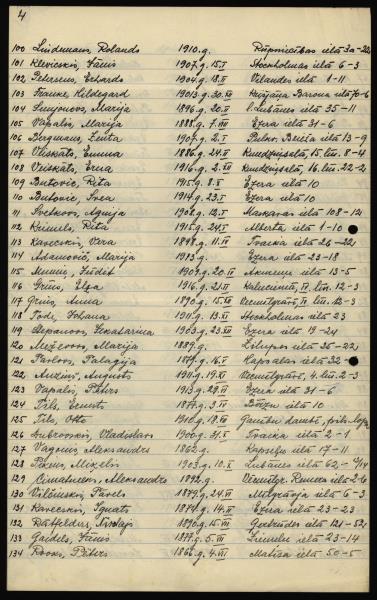 4
100 Lindmans, Rolands 1910.g. ielā 3a-22
101 Klevickis, Jānis 1907.g. 15.I Stockholmas ielā 6-3
102 Petersens, Erhards 1904.g. 18.II Vīlandes ielā 1-11
103 Franke, Hildegard 1903.g. 30.XII Barona ielā
104 Semjonovs, Marija 1896.g. 20.II l. Lubānas ielā 35-11
105 Vapalis, Marija 1888.g. 7.VIII Ezera ielā 31-6
106 Bergmans, Zenta 1907.g. 2.I Pulkv. Brieža ielā 13-9
107 Veiskāts, Emma 1886.g. 24.II Kundziņsalā, 15. līn. 8-4
108 Veiskāts, Erna 1916.g. 2.XII Kundziņsalā, 16. līn. 22-2
109 Butovic, Rita 1915.g. 8.X Ezera ielā 10
110 Butovic, Irea 1914.g. 23.I Ezera ielā 10
111 Agnija 1908.g. 12.I Maskavas ielā 108-121
112 Reimels, Rita 1915.g. 24.I Alberta ielā 1-10
113 Kaveckis, Vera 1898.g. 11.IV Traika ielā 26-22
114 Adamovič, Marija 1913.g. Ezera ielā 23-18
115 Judīt 1909.g. 20.IV Akmeņu ielā 13-5
116 Grīns, Elza 1916.g. 21.II II. līn. 12-3
117 Grīns, Anna 1890.g. 15.VIII Vecmīlgrāvī, II. līn. 12-3
118 Pode, Johana 1911.g. 13.XI Stockholmas ielā 23
119 Stepanovs, Jekaterina 1903.g. 23.XII Ezera ielā 19-24
120 Marija 1889.g. Zilupes ielā 35-22
121 Pavlovs, Palagija 1871.g. 16.I ielā 32
122 Auziņš, Augusts 1911.g. 19.XI Vecmīlgrāvī, 4. līn. 2-3
123 Vapalis, Pēters 1913.g. 29.VI Ezera ielā 31-6
124 Tils, Ernests 1877.g. 3.IV ielā 10
125 Tils, Otto 1910.g. 18.VII Ganību dambī, pils.
126 Dubrovskis, Vladislavs 1900.g. 31.X Traika ielā 2-1
127 Vagonis, Aleksandrs 1862.g. Kapseļu ielā 17-11
128 Miķelis 1903.g. 10.X Lubānas ielā 62,
129 Aleksandrs 1892.g. ielā 2-6
130 Viļčinskis, Pāvels 1879.g. 24.VI Mīlgrāvja ielā 6-3
131 Kaveckis, Ignats 1874.g. 14.II Ezera ielā 23-23
132 1890.g. 15.VIII Ģertrūdes ielā 121-52
133 Gaidels, Jānis 1877.g. 5.VII ielā 23-14
134 Rooks, Pēters 1865.g. 4.VII Matīsa ielā 50-5